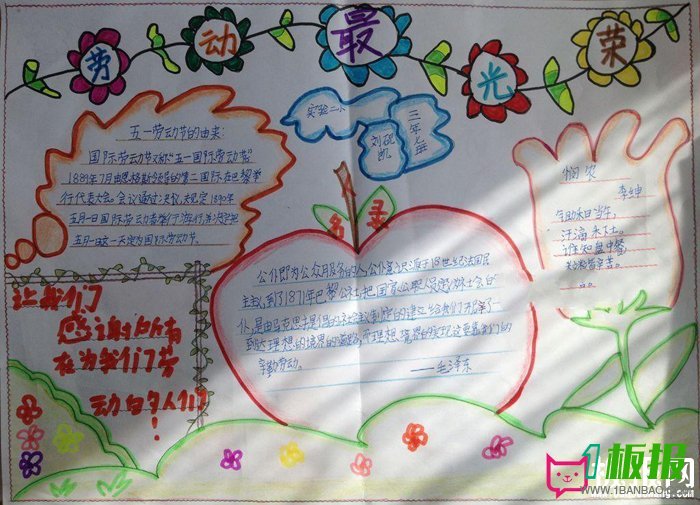 劳动最光荣
五一劳动节的由来:
国际劳动节又称"五一国际劳动节"
1889年7月由恩格斯领导的第二国际在巴黎举
行代表大会。会议通过决议,规定1890年
五月一日国际劳动者举行游行,并决定把
五月一日这一天定为国际劳动节。
实验二小
三年七班
刘砚凯
名录
公仆即为公众服务的人,公仆意识源于18世纪法国民
到了1871年巴黎公社,把国家公职人员
仆,是由马克思
到达理想的境界
辛勤劳动。
——毛泽东
悯农
李绅
锄禾日当午,
汗滴禾下土。
谁知盘中餐
粒粒皆辛苦。
让我们
感谢所有
在为我们劳
动的人们
!
1板报
WWW.1BANBAO